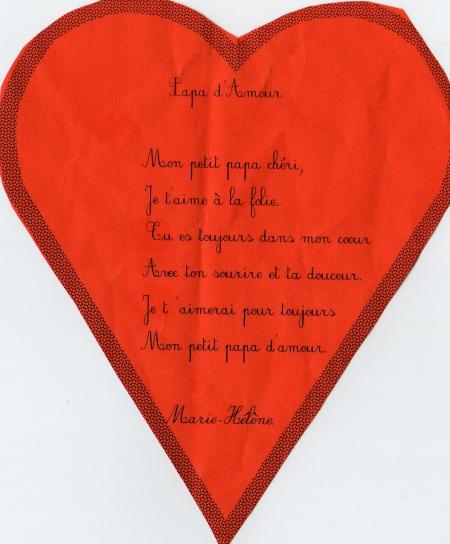 Papa d'Amour
Mon petit papa chéri,
Je t'aime à la folie.
Tu es toujours dans mon cœur
Avec ton sourire et ta douceur.
Je t 'aimerai pour toujours
Mon petit papa d'amour.
Marie-Hélène.